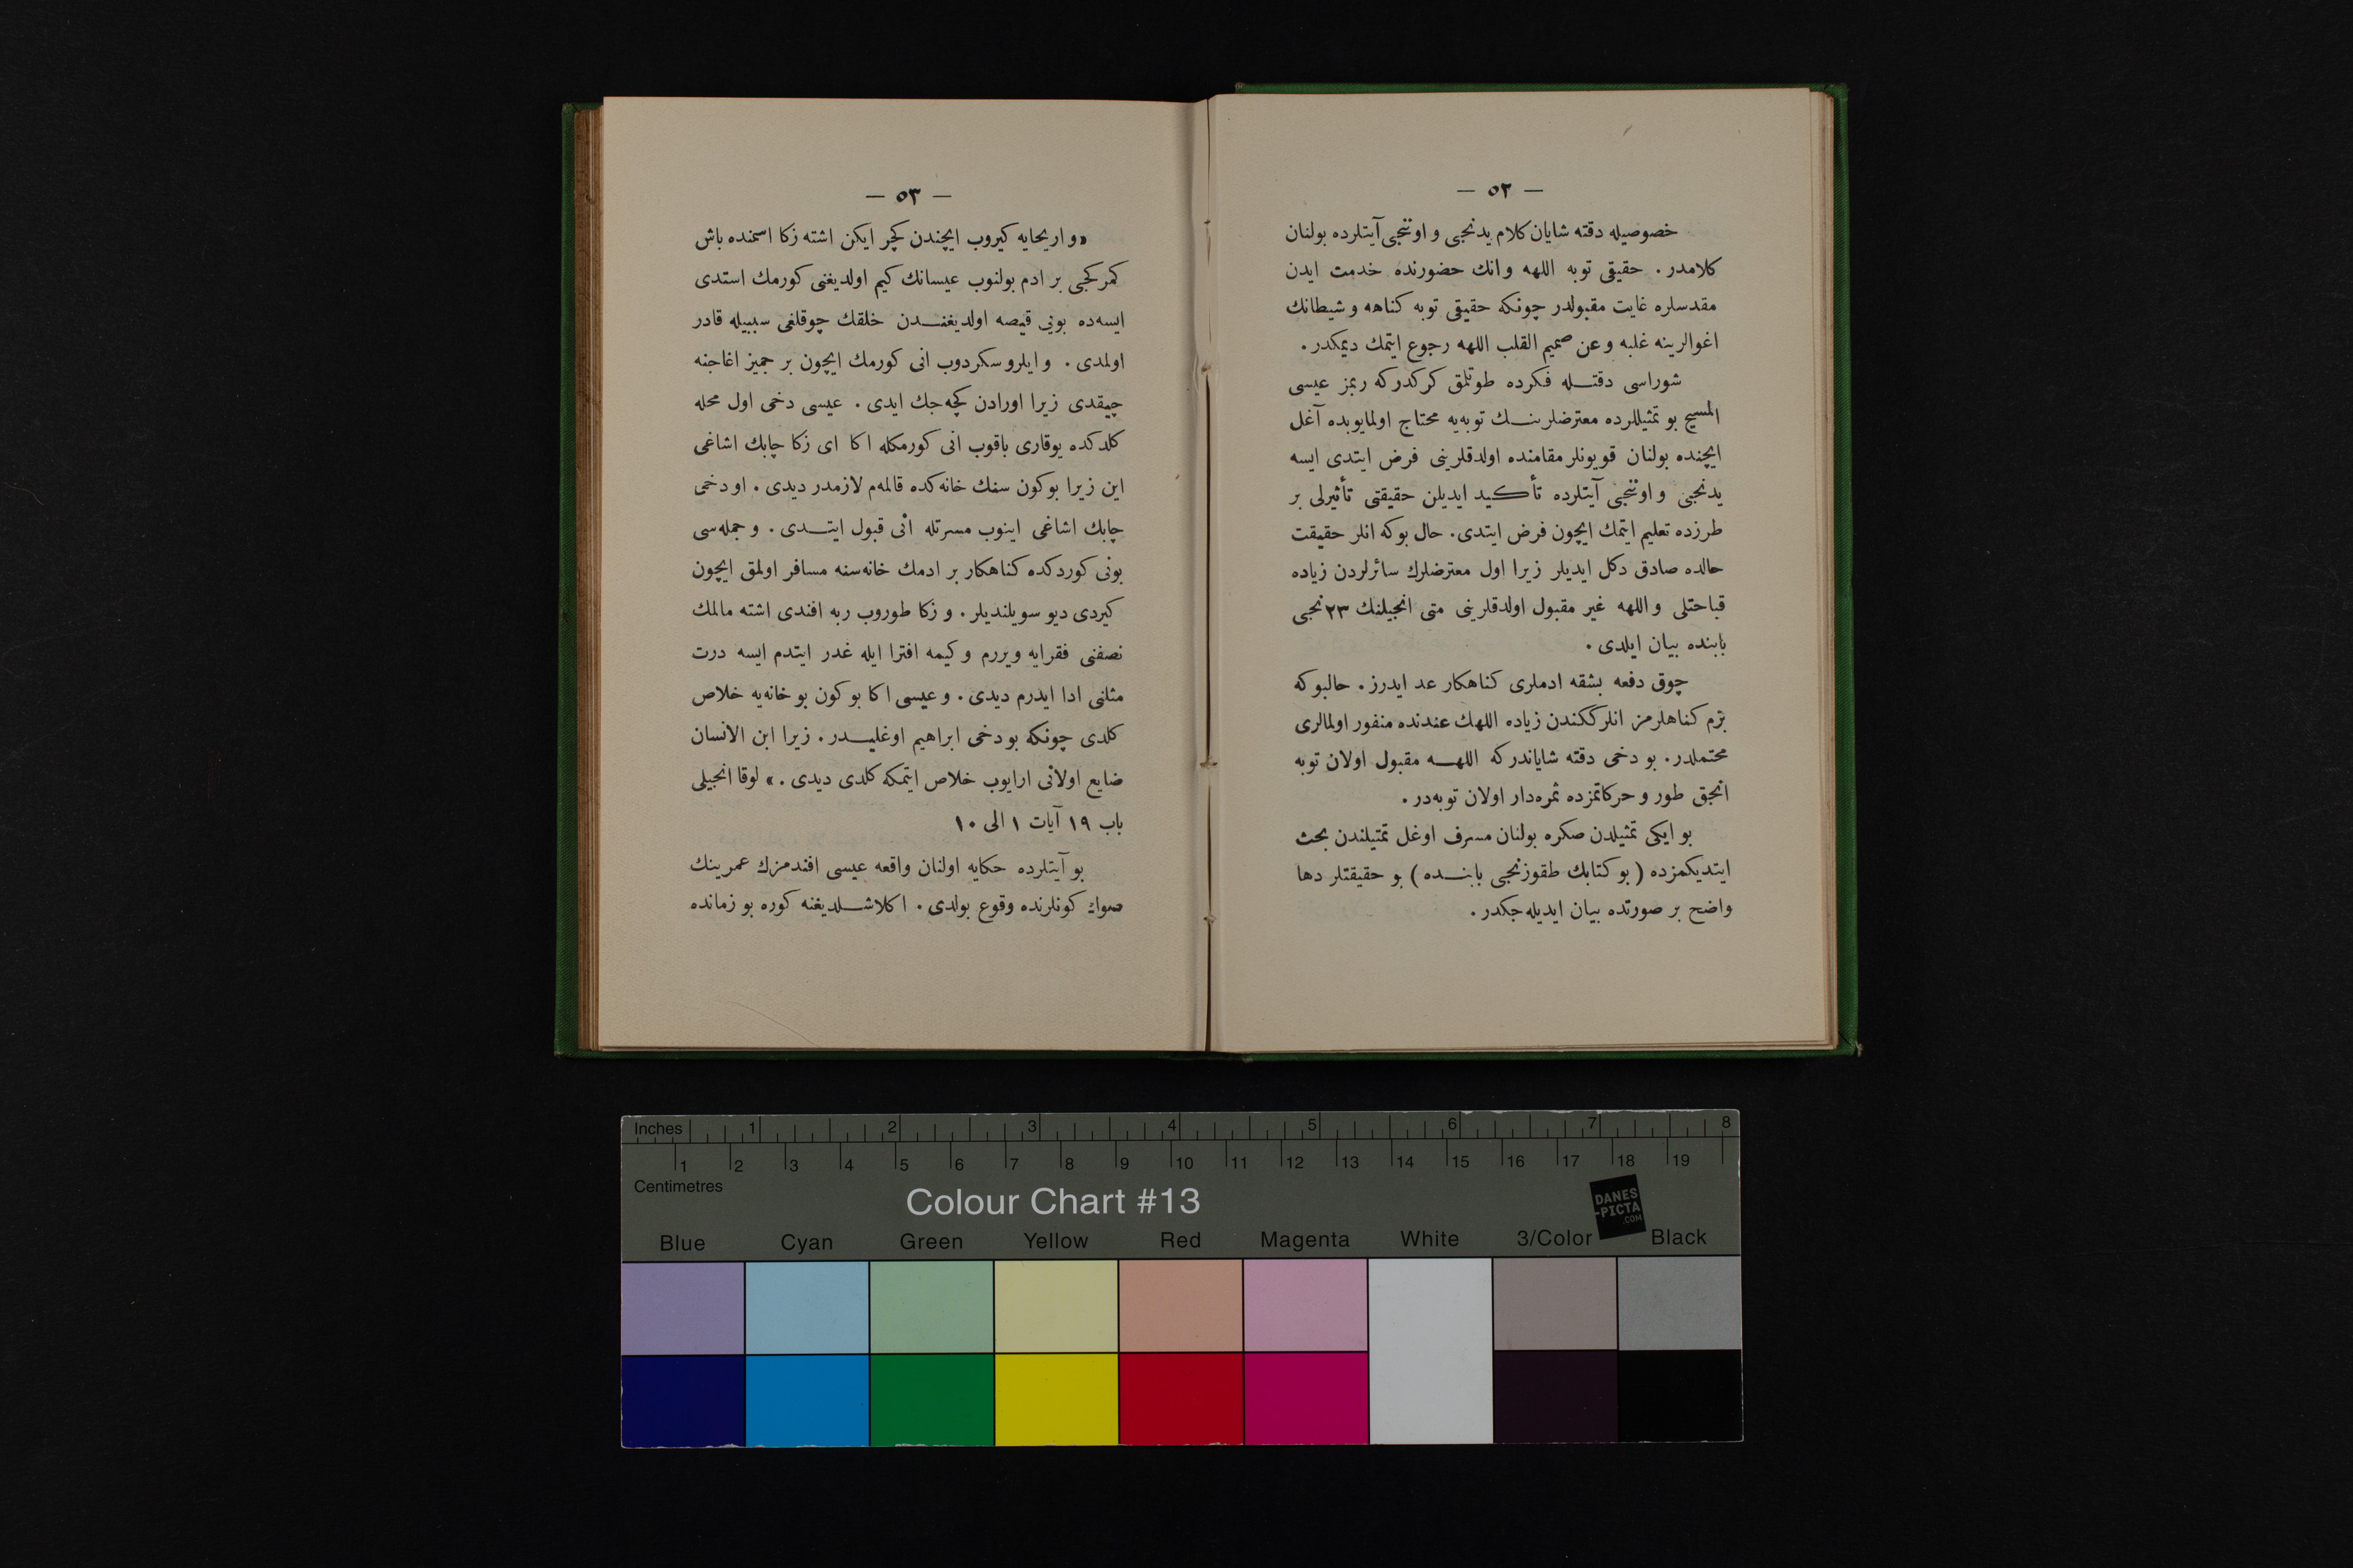 — ٥٢ —
خصوصیله دقته شایان كلام یدنجی و اوننجی آیتلرده بولنان
كلامدر . حقیقی توبه اللهه وانك حضورنده خدمت ایدن
مقدسلره غایت مقبولدر چونكه حقیقی توبه كناهه و شیطانك
اغوالرینه غلبه و عن صمیم القلب اللهه رجوع ایتمك دیمكدر .
شوراسی دقتله فكرده طوتلمق كركدركه ربمز عیسی
المسیح بو تمثیللرده معترضلرینك توبه‌یه محتاج اولمایوبده آغل
ایچنده بولنان قویونلر مقامنده اولدقلرینی فرض ایتدی ایسه
یدنجی و اوننجی آیتلرده تأكید ایدیلن حقیقتی تأثیرلی بر
طرزده تعلیم ایتمك ایچون فرض ایتدی . حال بوكه انلر حقیقت
حالده صادق دكل ایدیلر زیرا اول معترضلرك سائرلردن زیاده
قباحتلی و اللهه غیر مقبول اولدقلرینی متی انجیلنك ٢٣نجی
بابنده بیان ایلدی .
چوق دفعه بشقه ادملری كناهكار عد ایدرز . حالبوكه
بزم كناهلرمز انلرككندن زیاده اللهك عندنده منفور اولمالری
محتملدر . بو دخی دقته شایاندركه اللهه مقبول اولان توبه
انجق طور و حركاتمزده ثمره‌دار اولان توبه‌در .
بو ایكی تمثیلدن صكره بولنان مسرف اوغل تمثیلندن بحث
ایتدیكمزده ( بو كتابك طقوزنجی بابنده ) بو حقیقتلر دها
واضح بر صورتده بیان ایدیله‌جكدر .
— ٥٣ —
« و اریحایه كیروب ایچندن كچر ایكن اشته زكا اسمنده باش
كمركجی بر ادم بولنوب عیسانك كیم اولدیغنی كورمك استدی
ایسه‌ده بویی قیصه اولدیغندن خلقك چوقلغی سببیله قادر
اولمدی . و ایلرو سكردوب انی كورمك ایچون بر جمیز اغاجنه
چیقدی زیرا اورادن كچه‌جك ایدی . عیسی دخی اول محله
كلدكده یوقاری باقوب انی كورمكله اكا ای زكا چابك اشاغی
این زیرا بوكون سنك خانه‌كده قالمه‌م لازمدر دیدی . او دخی
چابك اشاغی اینوب مسرتله انی قبول ایتدی . و جمله‌سی
بونی كوردكده كناهكار بر ادمك خانه‌سنه مسافر اولمق ایچون
كیردی دیو سویلندیلر . و زكا طوروب ربه افندی اشته مالمك
نصفنی فقرایه ویررم و كیمه افترا ایله غدر ایتدم ایسه درت
مثلنی ادا ایدرم دیدی . و عیسی اكا بوكون بو خانه‌یه خلاص
كلدی چونكه بو دخی ابراهیم اوغلیدر . زیرا ابن الانسان
ضایع اولانی ارایوب خلاص ایتمكه كلدی دیدی . » لوقا انجیلی
باب ١٩ آیات ١ الی ١٠
بو آیتلرده حكایه اولنان واقعه عیسی افندمزك عمرینك
صوك كونلرنده وقوع بولدی . اكلاشلدیغنه كوره بو زمانده
Inches 1 2 3 4 5 6 7 8
1 2 3 4 5 6 7 8 9 10 11 12 13 14 15 16 17 18 19
Centimetres
Colour Chart #13
DANES
-PICTA
.COM
Blue Cyan Green Yellow Red Magenta White 3/Color Black